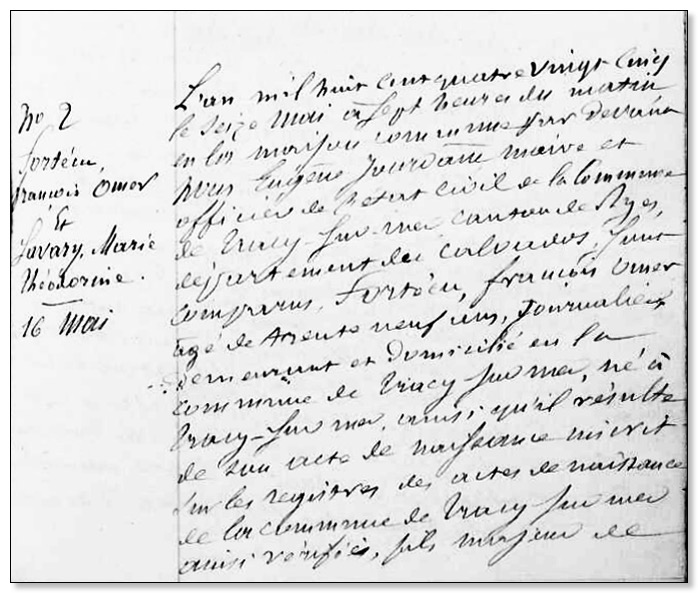 No 2
Fortécu,
françois Omer
Et
Savary, Marie
théodorine.
16 Mai
L'an mil huit cent quatre vingt cinq
le seize Mai à sept heures du matin
en la maison commune par devant
nous Eugène Jourdain maire et
officier de l'état Civil de la Commune
de tracy sur mer canton de Ryes,
département du calvados, sont
comparus, Fortécu, françois Omer
agé de trente neuf ans, journalier
demeurant et domicilié en la
commune de tracy sur mer, né à
tracy-sur mer, ainsi qu'il résulte
de son acte de naissance inscrit
sur les registres des actes de naissance
de la commune de tracy sur mer
ainsi vérifiés, fils majeur de